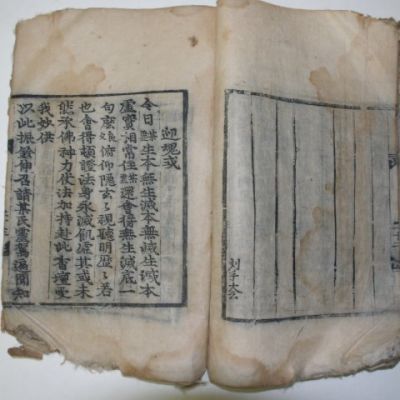 迎魂式
今日灵生本無生滅本無滅生滅本
虛實相當住灵還會得無生滅底一
句麽俯仰隱玄玄視聽明歷歷若
也會得頓證法身永滅飢虛其或未
然承佛神力仗法加持赴此香壇受
我妙供
以此振鈴伸召請某氏靈駕遥聞知
刘千大仝